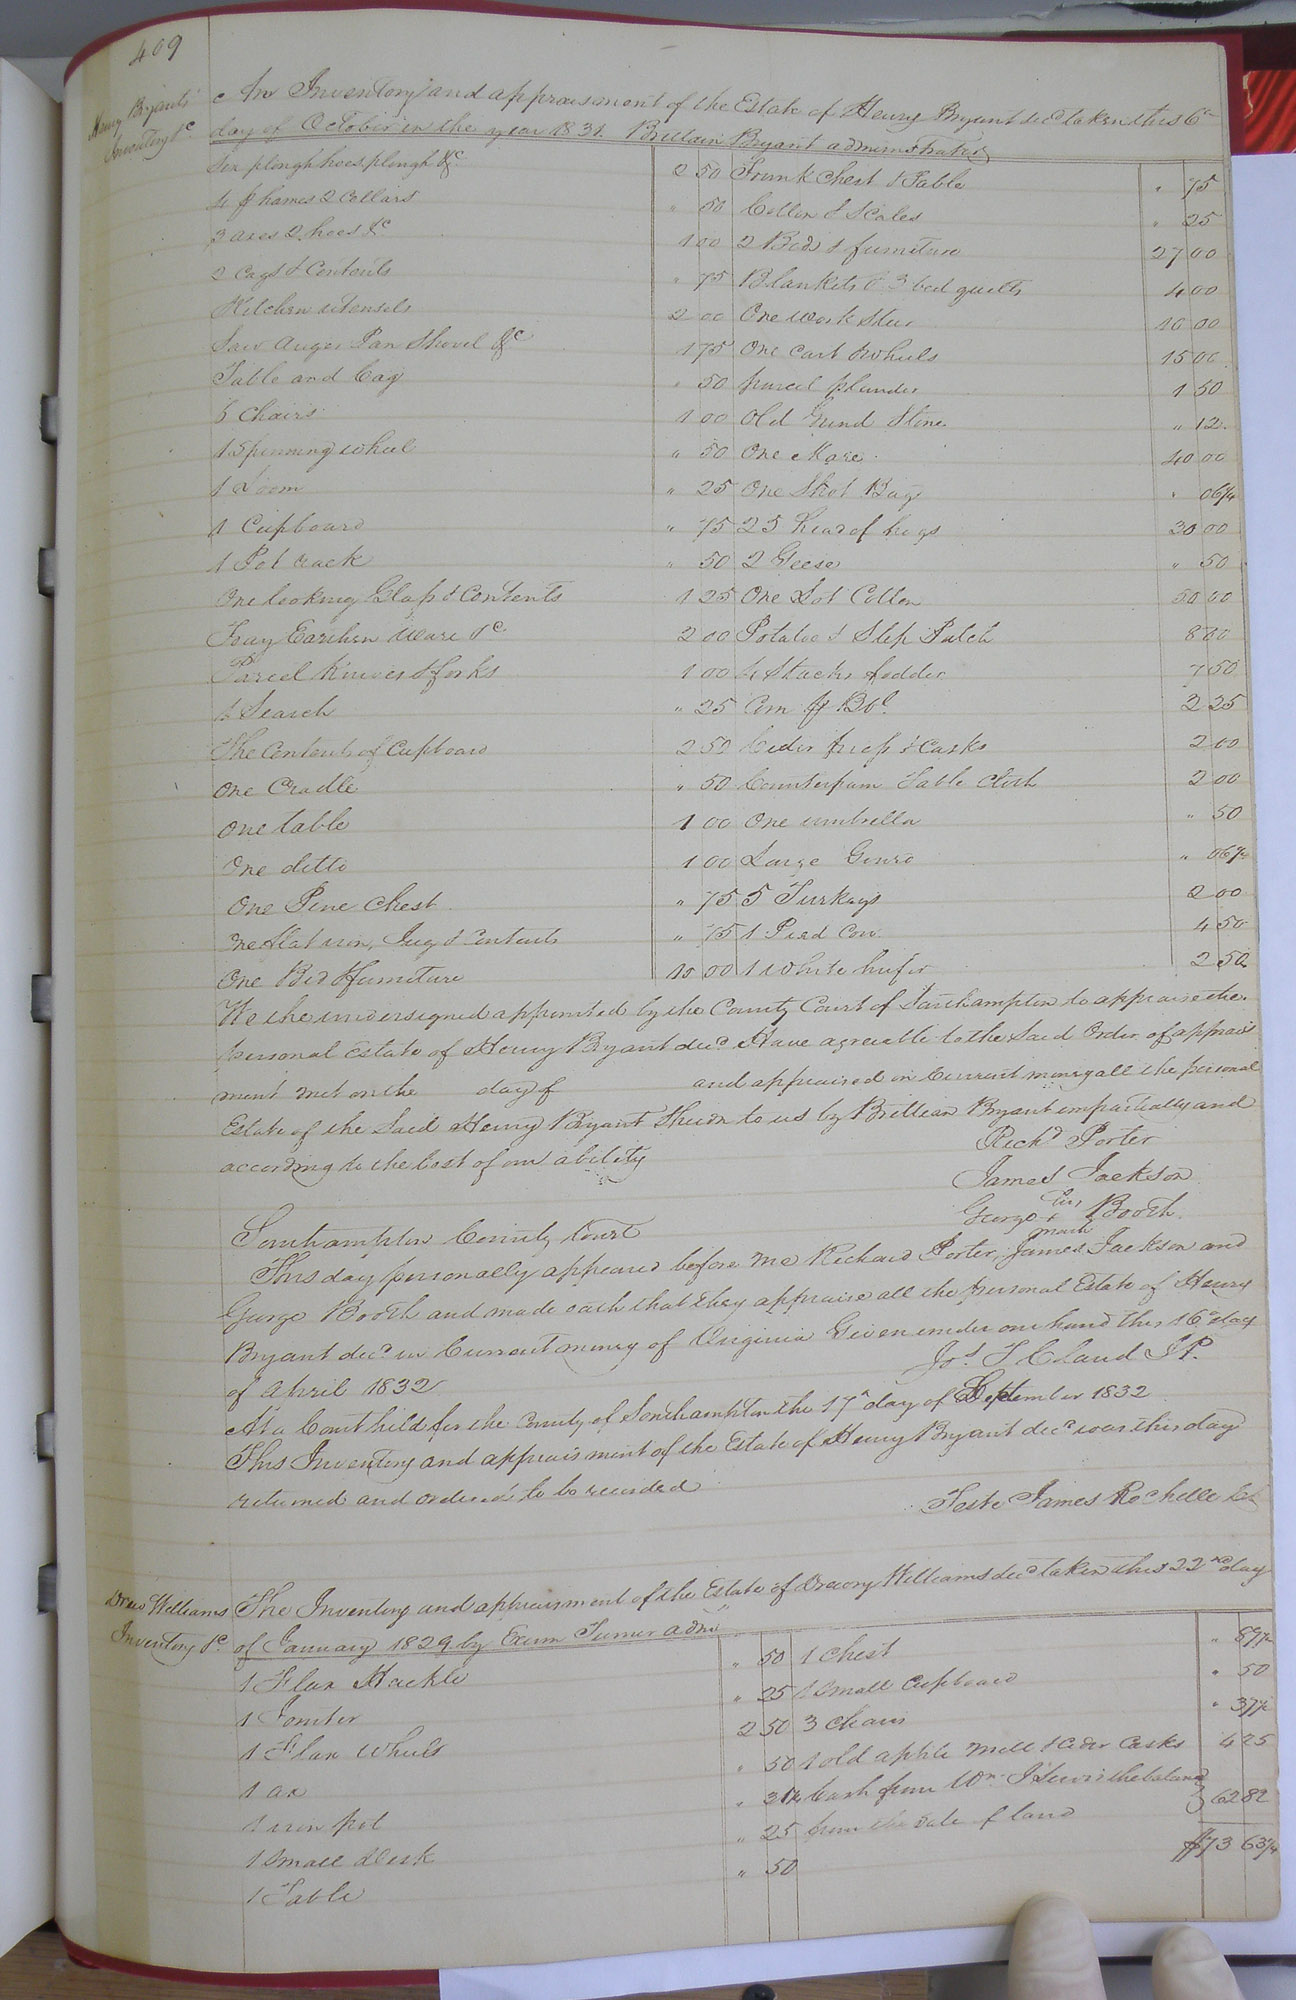 409
Henry Bryants
Inventory &c
An Inventory and appraisment of the Estate of Henry Bryant decd taken this 6th
day of October in the year 1831 Brittain Bryant administrator
Six plough hoes, plough &c 2 50 Trunk Chest & Table " 75
4 pr hames 2 Collars " 50 Cotton & Scales " 25
3 axes 2 hoes &c 1 00 2 Beds & furniture 27 00
2 Cags & Contents " 75 Blankets & 3 bed quilts 4 00
Kitchen utensels 2 00 One work Steer 10 00
Saw auger Pan Shovel &c 1 75 One Cart & wheels 15 00
Table and Cag " 50 parcel plunder 1 50
6 Chairs 1 00 Old Grind Stone " 12
1 Spinning wheel " 50 One Mare 40 00
1 Loom " 25 One Shot Bag " 06¼
1 Cupboard " 75 25 head of hogs 30 00
1 Pot rack " 50 2 Geese " 50
One looking Glass & Contents 1 25 One Lot Cotton 50 00
Tray Earthen Ware &c 2 00 Potatoe & Slip Patch 8 00
Parcel Knives & forks 1 00 4 Stacks fodder 7 50
1 Search " 25 Corn pr Bbl 2 25
The Contents of Cupboard 2 50 Cider press & Casks 2 00
One Cradle " 50 Counterpain Table Cloth 2 00
One table 1 00 One umbrella " 50
One ditto 1 00 Large Gourd " 06¼
One Pine Chest " 75 5 Turkeys 2 00
One flat iron, Jug & Contents " 75 1 Pied Cow 4 50
One Bed & furniture 10 00 1 White heifer 2 50
We the undersigned appointed by the County Court of Southampton to appraise the
personal Estate of Henry Bryant decd Have agreeable to the Said Order of apprais
ment met on the day of and appraised in Current money all the personal
Estate of the Said Henry Bryant Shewn to us by Brittian Bryant impartially and
according to the best of our ability
Richd Porter
James Jackson
George his + mark Booth
Southampton County Court
This day personally appeared before me Richard Porter, James Jackson and
George Booth and made oath that they appraise all the personal Estate of Henry
Bryant decd in Current money of Virginia Given under our hand this 16th day
of April 1832
Jos. T Claud J.P.
At a Court held for the County of Southampton the 17th day of September 1832
This Inventory and appraisment of the Estate of Henry Bryant decd was this day
returned and ordered to be recorded
Teste James Rochelle Cl
Drew Williams
Inventory &c
The Inventory and appraisment of the Estate of Drewry Williams decd taken this 22nd day
of January 1829 by Exum Turner admr
1 Flax Hackle " 50 1 Chest " 87½
1 Jointer " 25 1 Small Cupboard " 50
1 Flax Wheels 2 50 3 chairs " 37½
1 ax " 50 1 old apple Mill & Cider Casks 4 25
1 iron pot " 31¼ Cash from Wm J Lewis the balance
1 Small desk " 25 from the Sale of land 62 82
1 Table " 50 $73 63¼